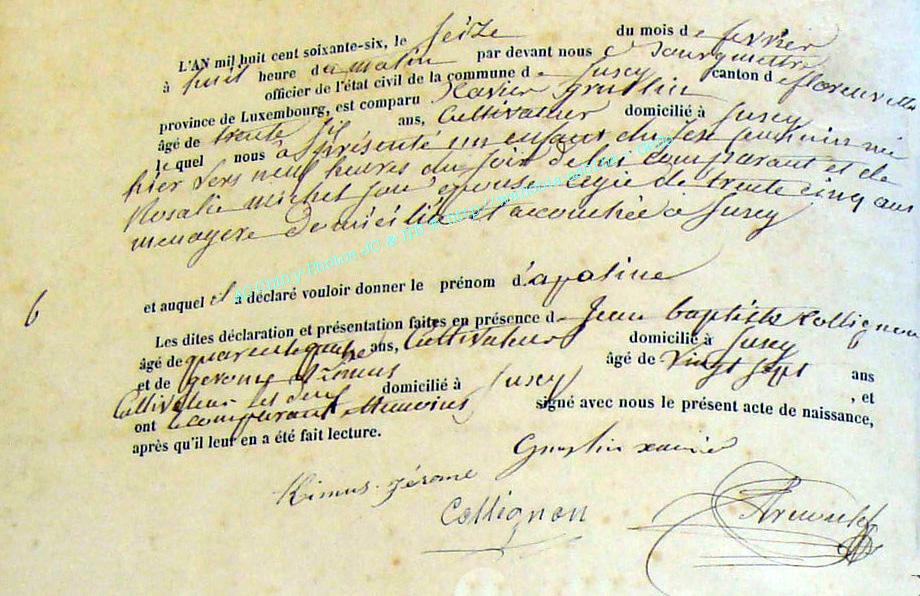 L'AN mil huit cent soixante-six, le Seize du mois de fevrier
à huit heure du matin par devant nous
officier de l'état civil de la commune de Jusey canton de florenville
province de Luxembourg, est comparu Xavier
âgé de trente six ans, Cultivateur domicilié à Jusey
le quel nous a présenté un enfant du sexe feminin né
hier vers neuf heures du soir de lui comparant et de
Rosalie michel son épouse agée de trente cinq ans
menagere domiciliée et accouchée a Jusey
6
et auquel il a déclaré vouloir donner le prénom d'apoline
Les dites déclaration et présentation faites en présence de Jean baptiste Collignon
âgé de quarente quatre ans, Cultivateur domicilié à Jusey
et de gerome âgé de vingt sept ans
Cultivateur domicilié à Jusey, et
ont le comparant et temoins signé avec nous le présent acte de naissance,
après qu'il leur en a été fait lecture.
xavier
jérome
Collignon